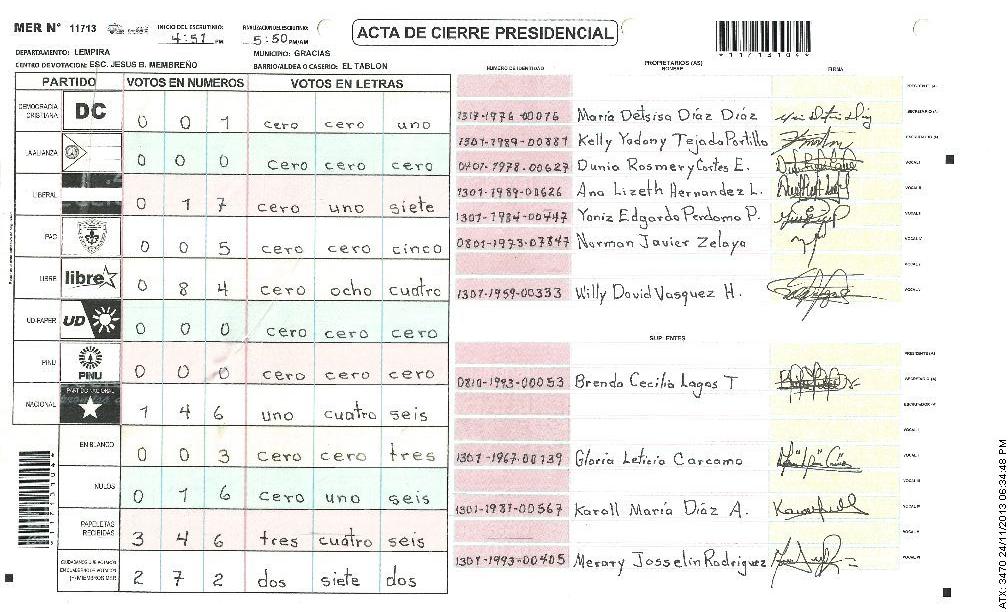 MER Nº 11713
INICIO DEL ESCRUTINIO:
4:51 PM
FINALIZACION DEL ESCRUTINIO:
5:50 PM/AM
ACTA DE CIERRE PRESIDENCIAL
DEPARTAMENTO: LEMPIRA
MUNICIPIO: GRACIAS
CENTRO DE VOTACION: ESC. JESUS B. MEMBREÑO
BARRIO/ALDEA O CASERIO: EL TABLON
PARTIDO VOTOS EN NUMEROS VOTOS EN LETRAS
DEMOCRACIA CRISTIANA DC 0 0 1 cero cero uno
LA ALIANZA 0 0 0 cero cero cero
LIBERAL 0 1 7 cero uno siete
PAC 0 0 5 cero cero cinco
LIBRE libre 0 8 4 cero ocho cuatro
UD-FAPER UD 0 0 0 cero cero cero
PINU PINU 0 0 0 cero cero cero
NACIONAL PARTIDO NACIONAL 1 4 6 uno cuatro seis
EN BLANCO 0 0 3 cero cero tres
NULOS 0 1 6 cero uno seis
PAPELETAS RECIBIDAS 3 4 6 tres cuatro seis
2 7 2 dos siete dos
NUMERO DE IDENTIDAD
PROPIETARIOS (AS)
NOMBRE
FIRMA
PRESIDENTE (A)
1317-1976-00076 María Delsisa Díaz Díaz SECRETARIO (A)
1301-1989-00887 Kelly Yadany Tejada Portillo ESCRUTADOR (A)
0401-1978-00627 Dunia Rosmery Cortes E. VOCAL I
1301-1989-00626 Ana Lizeth Hernandez L. VOCAL II
1301-1984-00447 Yaniz Edgardo Perdomo P.
0801-1973-07847 Norman Javier Zelaya VOCAL IV
1307-1959-00333 Willy David Vasquez H.
SUPLENTES
PRESIDENTE (A)
0210-1993-00053 Brenda Cecilia Lagos T SECRETARIO (A)
ESCRUTADOR (A)
1301-1967-00139 Gloria Leticia Carcamo
1301-1987-00567 Karoll María Díaz A.
1301-1993-00405 Merary Josselin Rodriguez
ATX: 3470 24/11/2013 06:34:48 PM